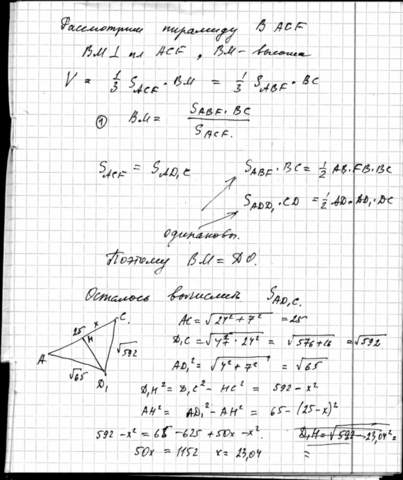 Рассмотрим пирамиду BACF
BM⊥ пл ACF, BM - высота
V = 1/3 S_ACF · BM = 1/3 S_ABF · BC
① BM = S_ABF · BC / S_ACF.
S_ACF = S_AD₁C S_ABF · BC = 1/2 AB · FB · BC
S_ADD₁ · CD = 1/2 AD · DD₁ · DC
одинаковы.
Поэтому BM = DO.
Осталось вычислить S_AD₁C.
AC = √(24² + 7²) = 25
D₁C = √(4² · 24²) = √(576+16) = √592
AD₁² = √(4² + 7²) = √65
D₁H² = D₁C² - HC² = 592 - x²
AH² = AD₁² - AH² = 65 - (25-x)²
592 - x² = 65 - 625 + 50x - x². D₁H = √(592 - 23,04²) =
50x = 1152 x = 23,04 =
C.
25 x
H
A
√592
√65
D₁